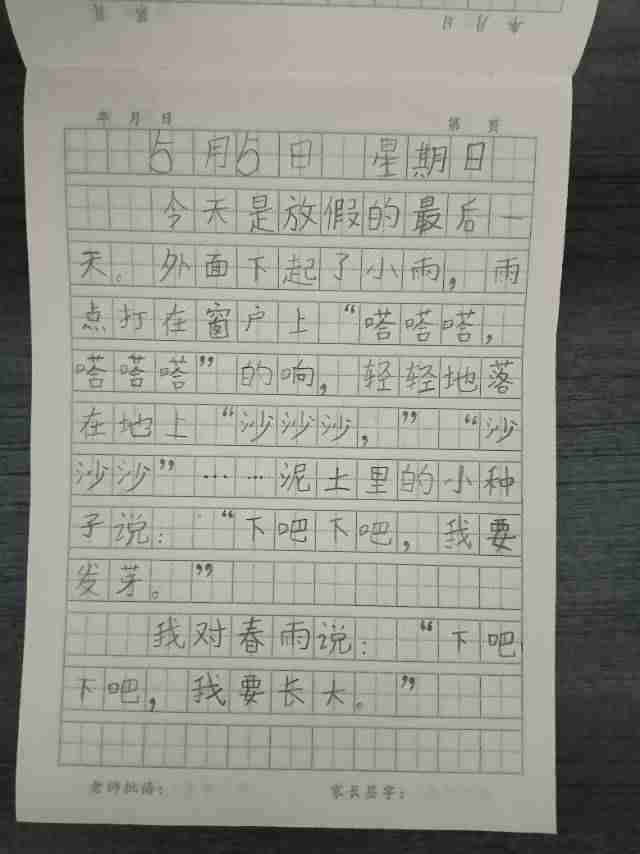 年 月 日 第 页
年 月 日 第 页
5月5日 星期日
今天是放假的最后一
天。外面下起了小雨，雨
点打在窗户上“嗒嗒嗒，
嗒嗒嗒”的响，轻轻地落
在地上“沙沙沙，”“沙
沙沙”……泥土里的小种
子说：“下吧下吧，我要
发芽。”
我对春雨说：“下吧
下吧，我要长大。”
老师批语： 家长签字：